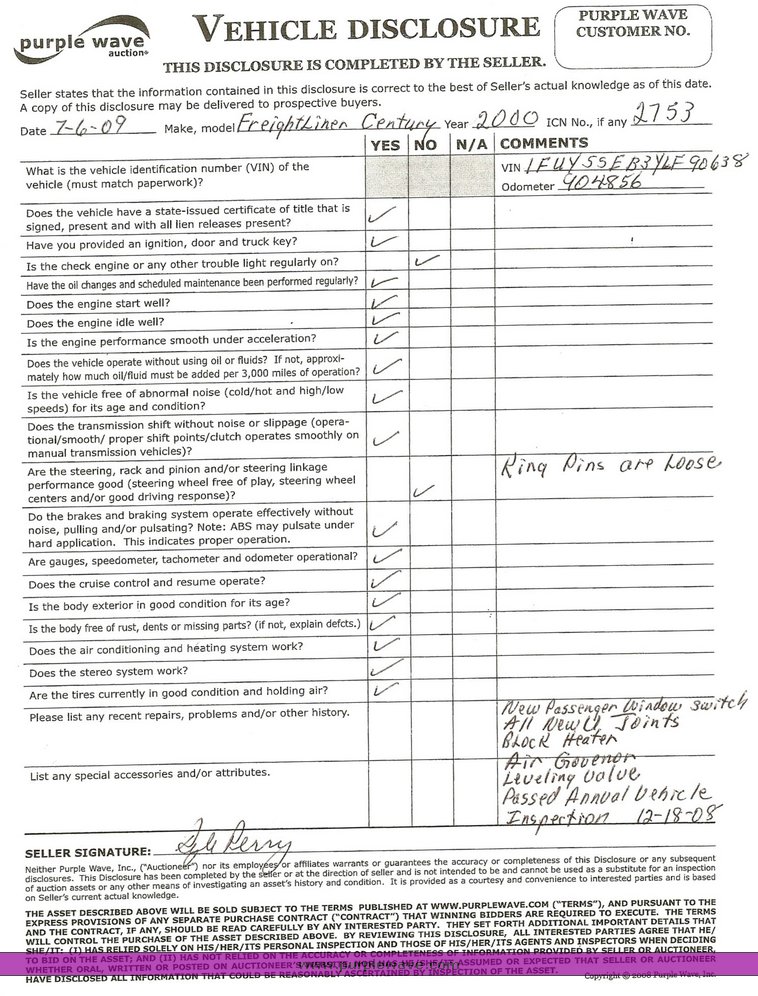 purple wave
auction
VEHICLE DISCLOSURE
THIS DISCLOSURE IS COMPLETED BY THE SELLER.
PURPLE WAVE
CUSTOMER NO.
Seller states that the information contained in this disclosure is correct to the best of Seller's actual knowledge as of this date.
A copy of this disclosure may be delivered to prospective buyers.
Date 7-6-09 Make, model FreightLiner Century Year 2000 ICN No., if any 2753
YES NO N/A COMMENTS
What is the vehicle identification number (VIN) of the
vehicle (must match paperwork)?
VIN 1FUYSSEB3YLF90638
Odometer 904856
Does the vehicle have a state-issued certificate of title that is
signed, present and with all lien releases present?
Have you provided an ignition, door and truck key?
Is the check engine or any other trouble light regularly on?
Have the oil changes and scheduled maintenance been performed regularly?
Does the engine start well?
Does the engine idle well?
Is the engine performance smooth under acceleration?
Does the vehicle operate without using oil or fluids? If not, approxi-
mately how much oil/fluid must be added per 3,000 miles of operation?
Is the vehicle free of abnormal noise (cold/hot and high/low
speeds) for its age and condition?
Does the transmission shift without noise or slippage (opera-
tional/smooth/ proper shift points/clutch operates smoothly on
manual transmission vehicles)?
Are the steering, rack and pinion and/or steering linkage
performance good (steering wheel free of play, steering wheel
centers and/or good driving response)?
King Pins are Loose
Do the brakes and braking system operate effectively without
noise, pulling and/or pulsating? Note: ABS may pulsate under
hard application. This indicates proper operation.
Are gauges, speedometer, tachometer and odometer operational?
Does the cruise control and resume operate?
Is the body exterior in good condition for its age?
Is the body free of rust, dents or missing parts? (if not, explain defcts.)
Does the air conditioning and heating system work?
Does the stereo system work?
Are the tires currently in good condition and holding air?
Please list any recent repairs, problems and/or other history.
New Passenger Window switch
All New U Joints
Block Heater
List any special accessories and/or attributes.
Air Govenor
Leveling Value
Passed Annual Vehicle
Inspection 12-18-08
SELLER SIGNATURE: Perry
Neither Purple Wave, Inc., ("Auctioneer") nor its employees or affiliates warrants or guarantees the accuracy or completeness of this Disclosure or any subsequent
disclosures. This Disclosure has been completed by the seller or at the direction of seller and is not intended to be and cannot be used as a substitute for an inspection
of auction assets or any other means of investigating an asset's history and condition. It is provided as a courtesy and convenience to interested parties and is based
on Seller's current actual knowledge.
THE ASSET DESCRIBED ABOVE WILL BE SOLD SUBJECT TO THE TERMS PUBLISHED AT WWW.PURPLEWAVE.COM ("TERMS"), AND PURSUANT TO THE
EXPRESS PROVISIONS OF ANY SEPARATE PURCHASE CONTRACT ("CONTRACT") THAT WINNING BIDDERS ARE REQUIRED TO EXECUTE. THE TERMS
AND CONTRACT, IF ANY, SHOULD BE READ CAREFULLY BY ANY INTERESTED PARTY. THEY SET FORTH ADDITIONAL IMPORTANT DETAILS THAT
WILL CONTROL THE PURCHASE OF THE ASSET DESCRIBED ABOVE. BY REVIEWING THIS DISCLOSURE, ALL INTERESTED PARTIES AGREE THAT HE/
SHE/IT: (I) HAS RELIED SOLELY ON HIS/HER/ITS PERSONAL INSPECTION AND THOSE OF HIS/HER/ITS AGENTS AND INSPECTORS WHEN DECIDING
TO BID ON THE ASSET; AND (II) HAS NOT RELIED ON THE ACCURACY OR COMPLETENESS OF INFORMATION PROVIDED BY SELLER OR AUCTIONEER,
WHETHER ORAL, WRITTEN OR POSTED ON AUCTIONEER'S ASSUMED OR EXPECTED THAT SELLER OR AUCTIONEER
HAVE DISCLOSED ALL INFORMATION THAT COULD BE REASONABLY ASCERTAINED BY INSPECTION OF THE ASSET.
www.purplewave.com
Copyright © 2008 Purple Wave, Inc.